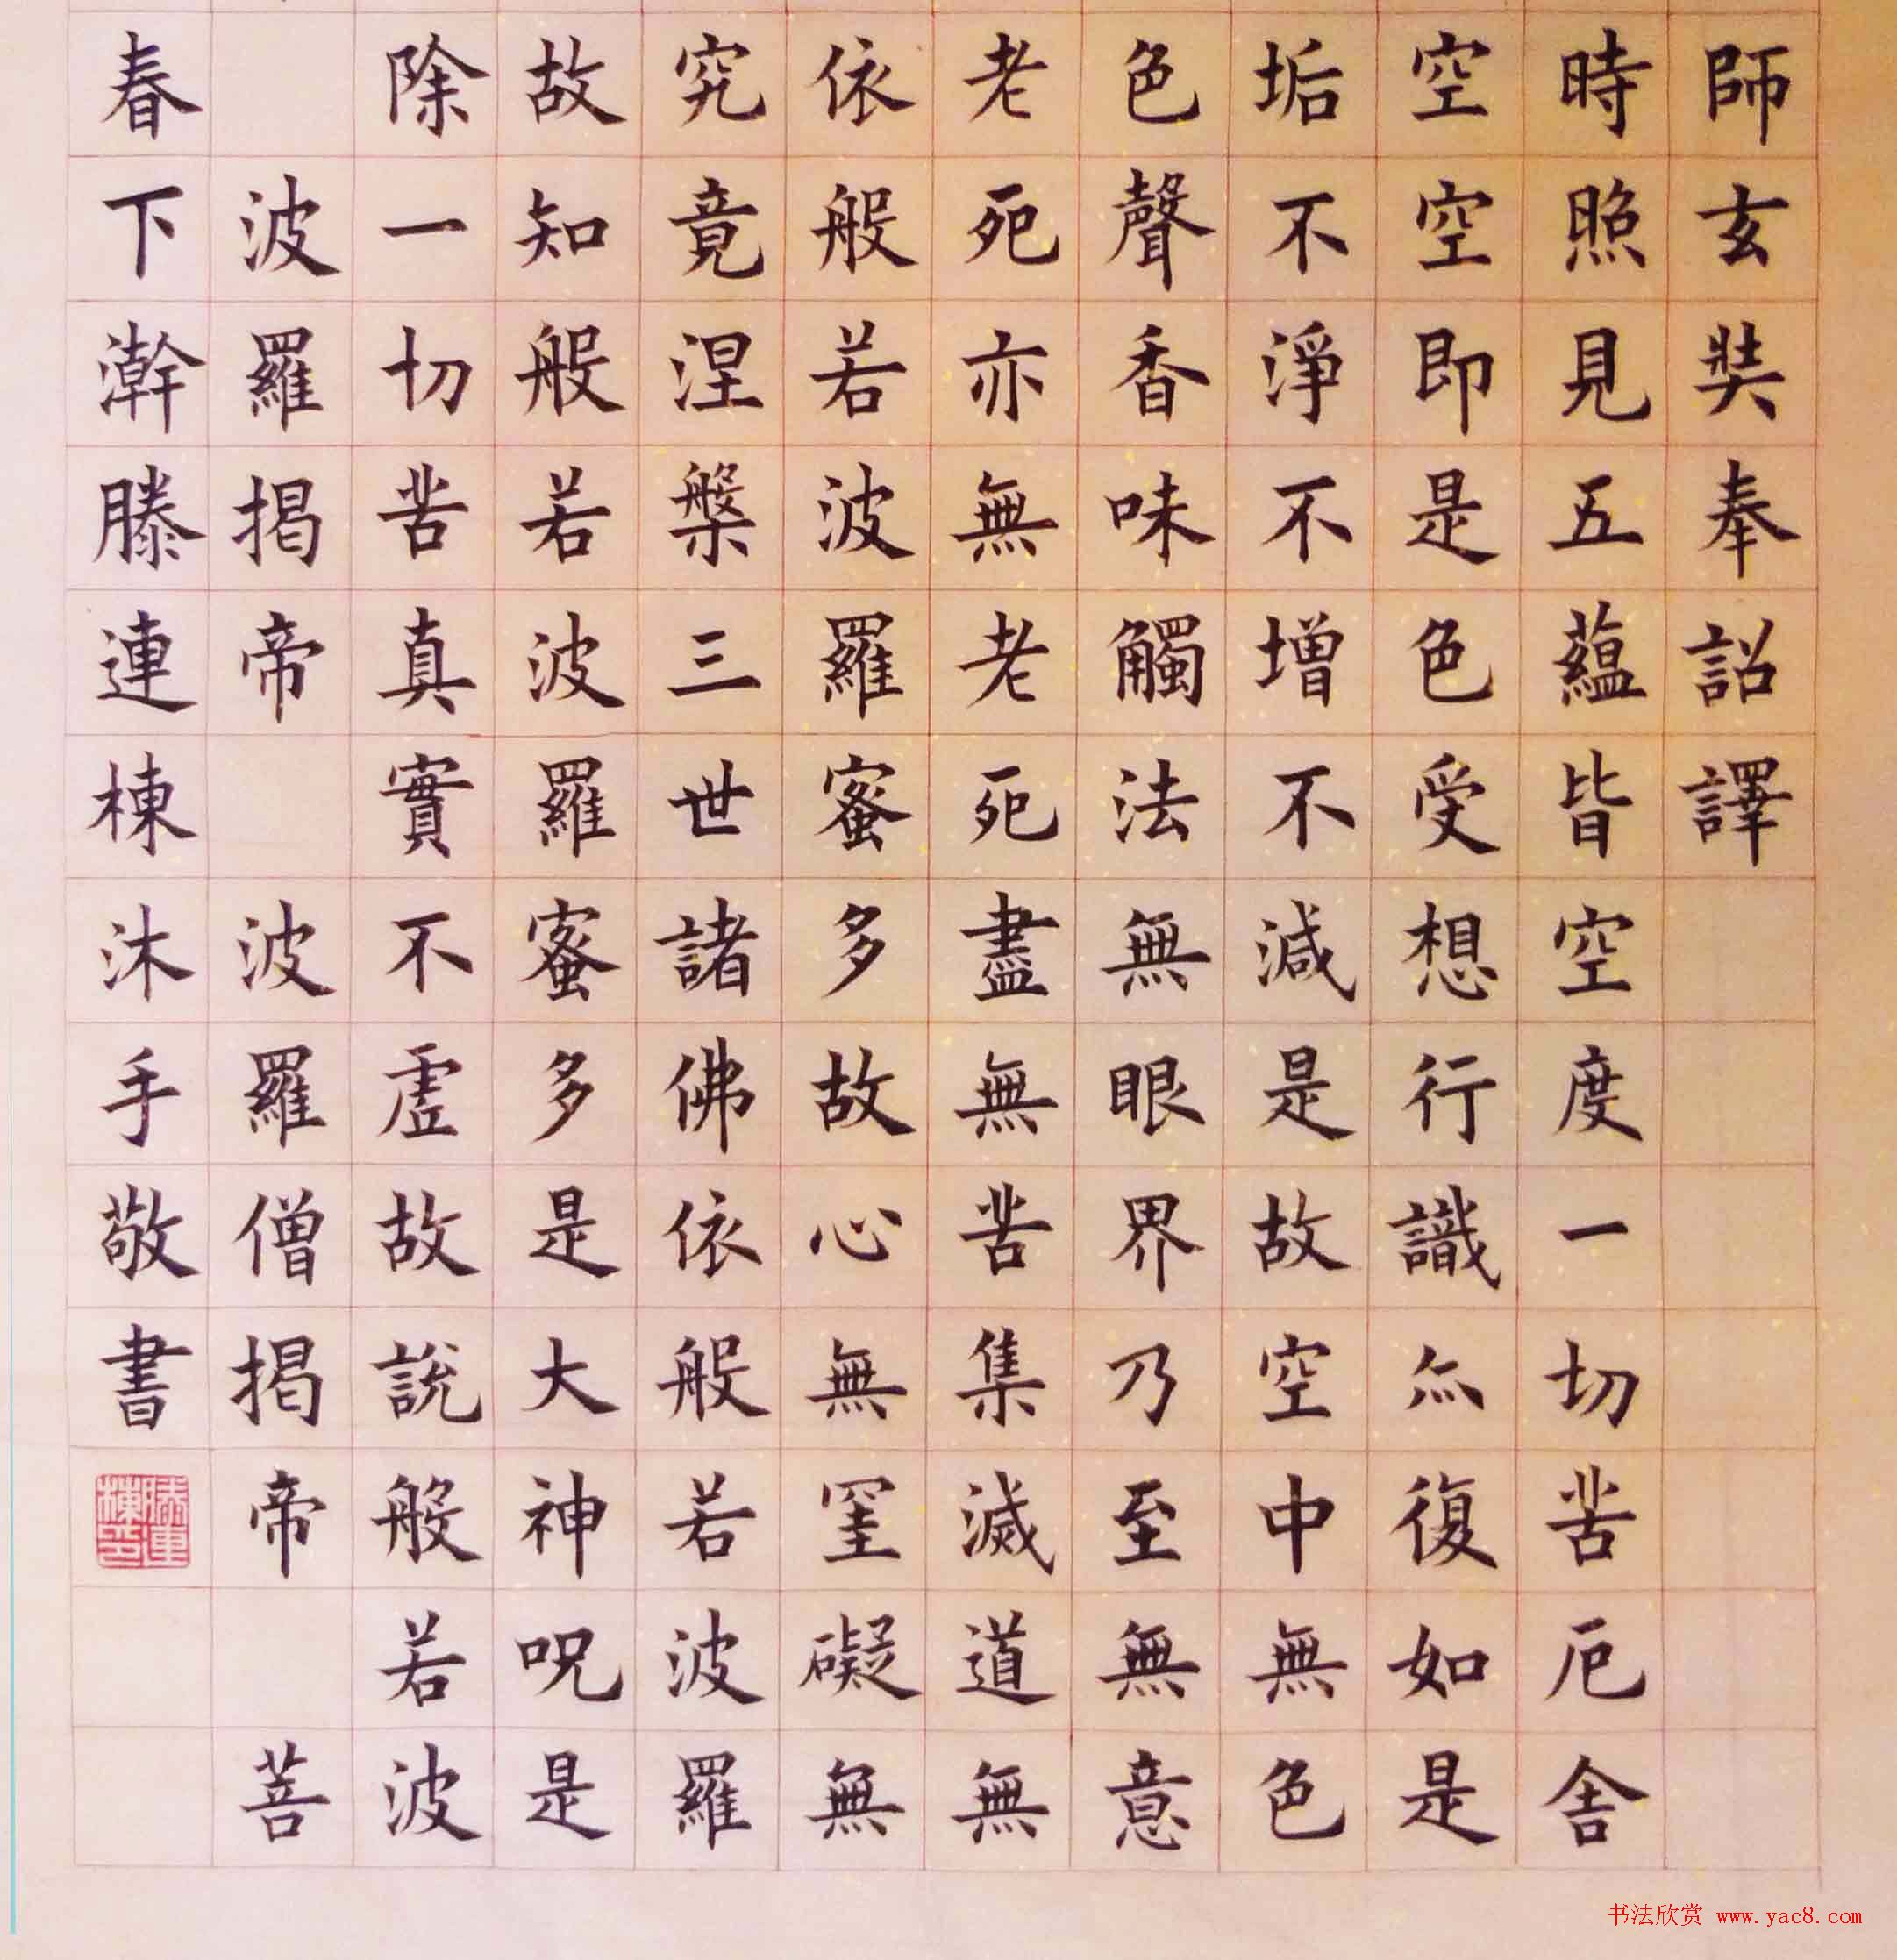 師玄奘奉詔譯
時照見五蘊皆空度一切苦厄舍
空空即是色受想行識亦復如是
垢不淨不增不減是故空中無色
色聲香味觸法無眼界乃至無意
老死亦無老死盡無苦集滅道無
依般若波羅蜜多故心無罣礙無
究竟涅槃三世諸佛依般若波羅
故知般若波羅蜜多是大神呪是
除一切苦真實不虛故說般若波
波羅揭帝 波羅僧揭帝 菩
春下澣滕連棟沐手敬書
滕連棟印
书法欣赏 www.yac8.com